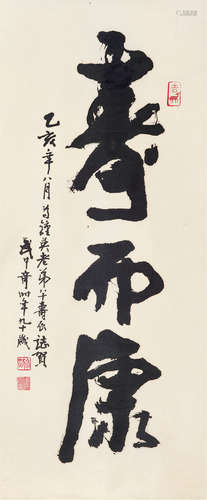 壽而康
乙亥年八月为鐘英老弟八十壽辰誌賀
武中奇时年九十歲